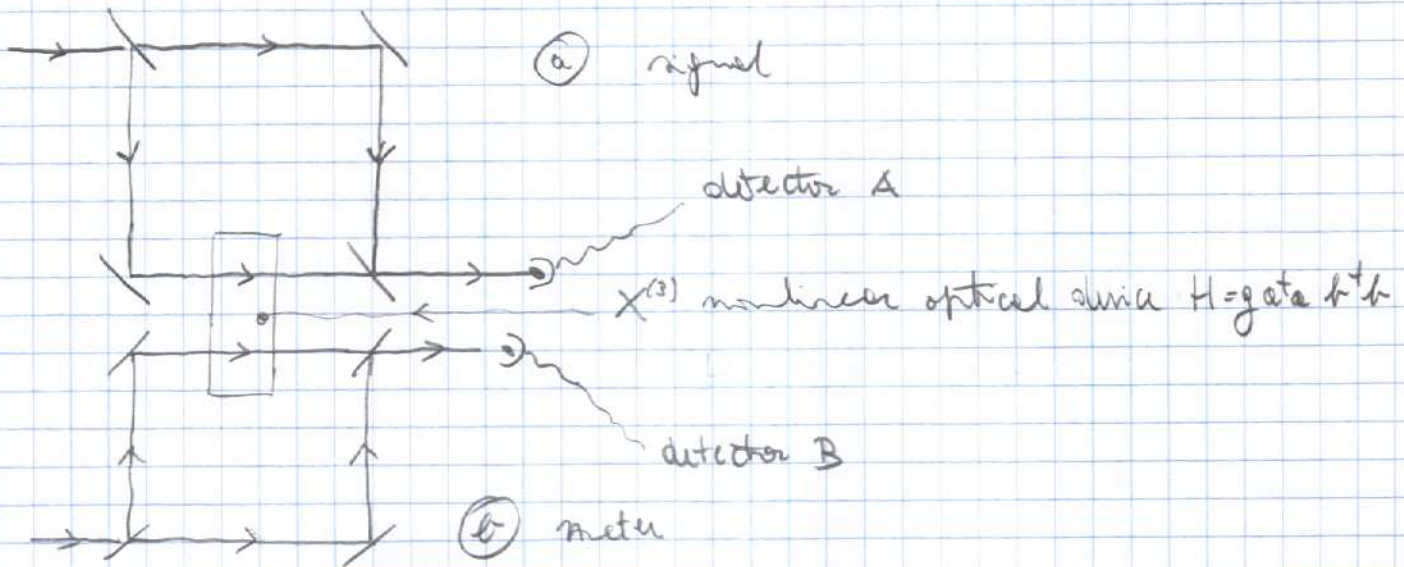 a signal
detector A
χ⁽³⁾ nonlinear optical device H=ga†a b†b
detector B
b meter